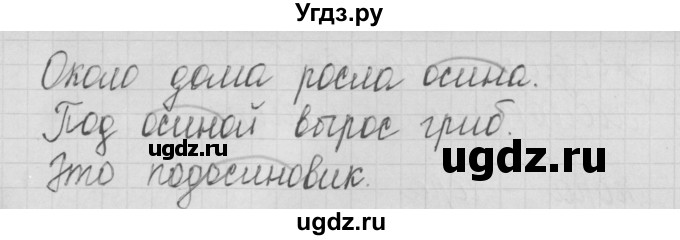 Угдз.ру
Около дома росла осина.
Под осиной вырос гриб.
ugdz.ru
ugdz.ru
Это подосиновик.
ugdz.ru
ugdz.ru